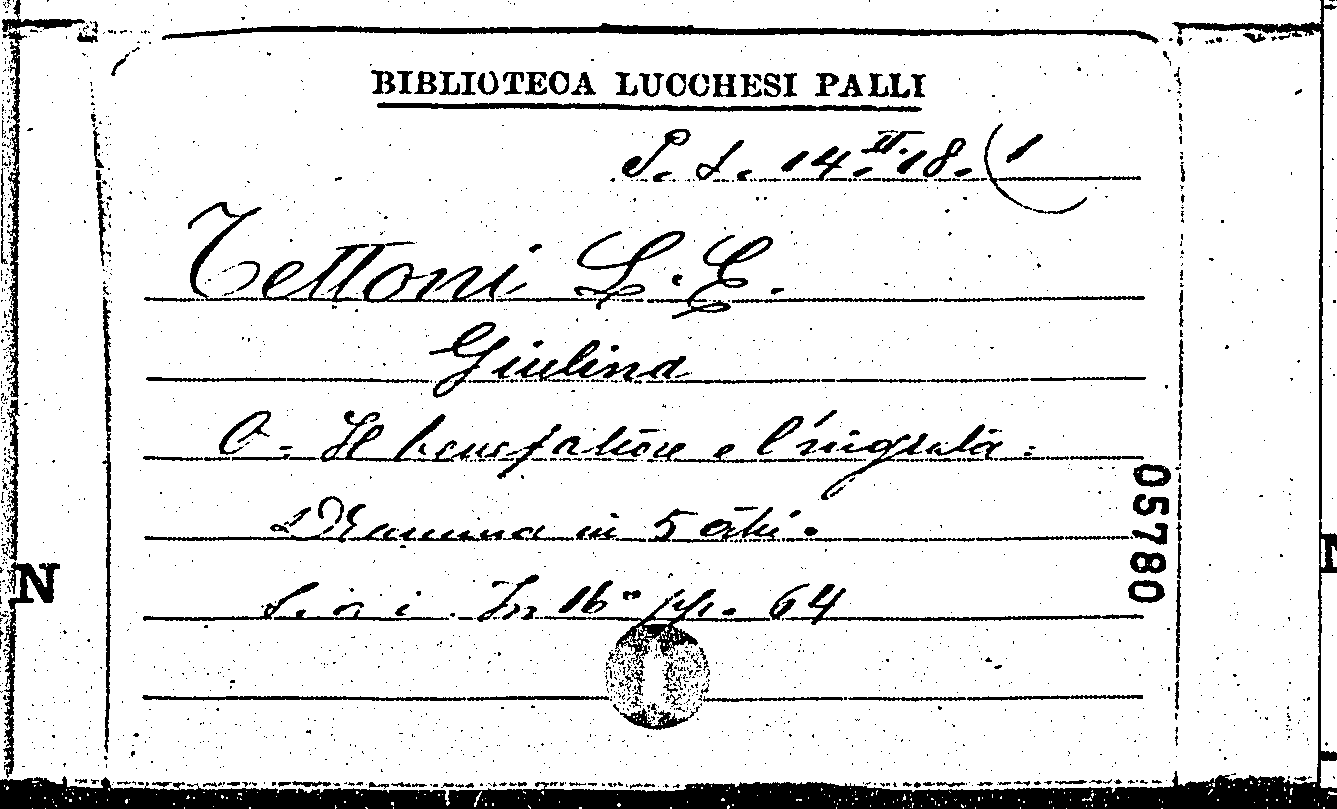 BIBLIOTECA LUCCHESI PALLI
P. s. 14.II.18.(1
Tettoni L. E.
Giulina
O = Il benefatore e l'ingrata:
Dramma in 5 atti.
S. a. i. In 16° pp. 64
05780
N